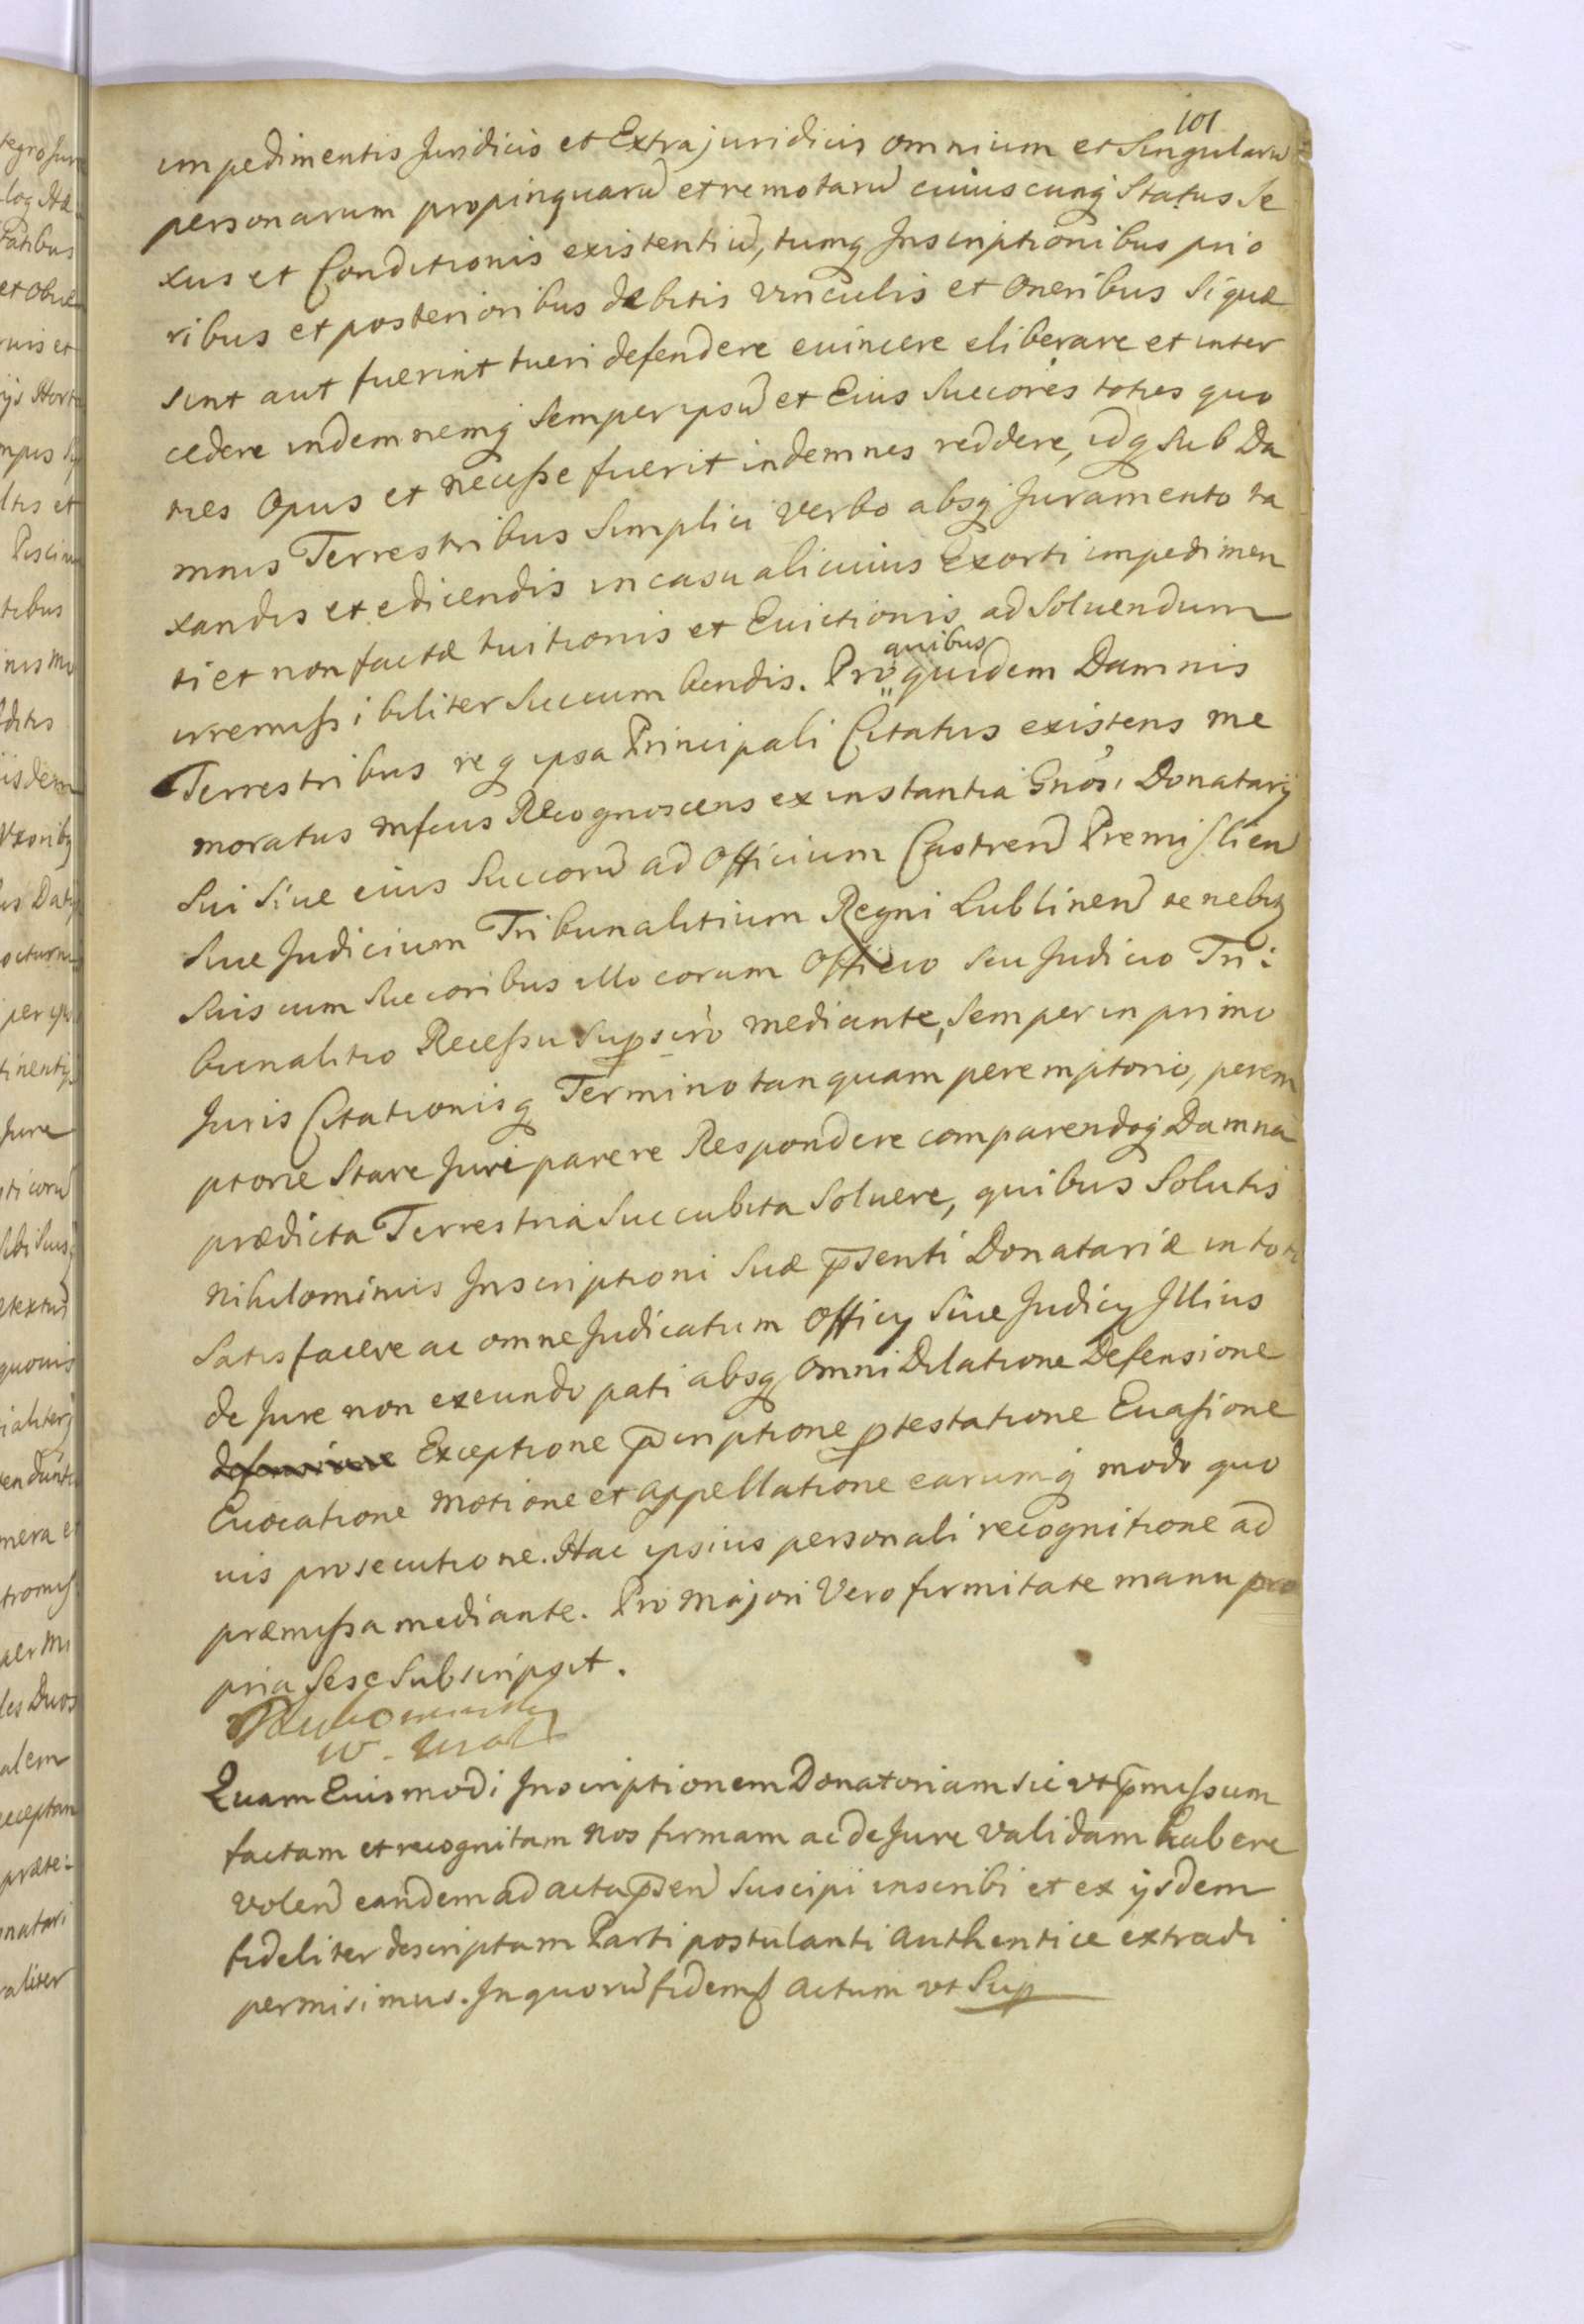 101
impedimentis Juridicis et Extrajuridicis omnium et Singularu͂
personarum propinquaru͂ et remotaru͂ cuiuscunq Status Se
xus et Conditionis existentiu͂, tumq Inscriptionibus prio
ribus et posterioribus debitis vinculis et Oneribus si quæ
sint aut fuerint tueri defendere euincere eliberare et inter
cedere indemnemq Semper ipsu͂ et Eius Succores toties quo
ties Opus et necesse fuerit indemnes reddere, idq Sub Da
mnis Terrestribus Simplici verbo absq Juramento ta
xandis et edicendis in casu alicuius Exorti impedimen
ti et non factæ tuitionis et Euictionis ad Soluendum
irremissibiliter Succumbendis. Pro quibus quidem Damnis
Terrestribus req ipsa Principali Citatus existens me
moratus Mfcus Recognoscens ex instantia Gnosi Donatarij
Sui Siue eius Succoru͂ ad Officium Castren͂ Premislien͂
Siue Judicium Tribunalitium Regni Lublinen͂ tenebit
Suis cum Succoribus illo coram Officio Seu Judicio Tri:
bunalitio Recessu Supscro mediante, Semper in primo
Juris Citationisq Termino tanquam peremptorio, perem
ptorie Stare Juri parere Respondere comparendoq Damna
prædicta Terrestria Succubita Soluere, quibus Solutis
nihilominus Inscriptioni Suæ p͞senti Donatariæ in toto
Satisfacere ac omne Judicatum Officij Siue Judicij Illius
de Jure non exeundo pati absq omni Dilatione Defensione
defensione Exceptione p͞scriptione ptestatione Euasione
Euocatione Motione et Appellatione earumq modo quo
uis prosecutione. Hac ipsius personali recognitione ad
præmissa mediante. Pro Majori Vero firmitate manu pro
pria Sese Subscripsit.
Quam Eiusmodi Inscriptionem Donatoriam sic vt p͞missum
factam et recognitam Nos firmam ac de Jure validam habere
volen͂ eandem ad acta p͞sen͂ Suscipi inscribi et ex ijsdem
fideliter descriptam Parti postulanti Authentice extradi
permisimus. In quoru͂ fidem Actum vt Sup